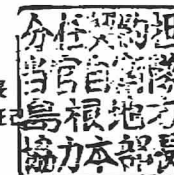 分任契約担
当官自衛隊
島根地方
協力本部長